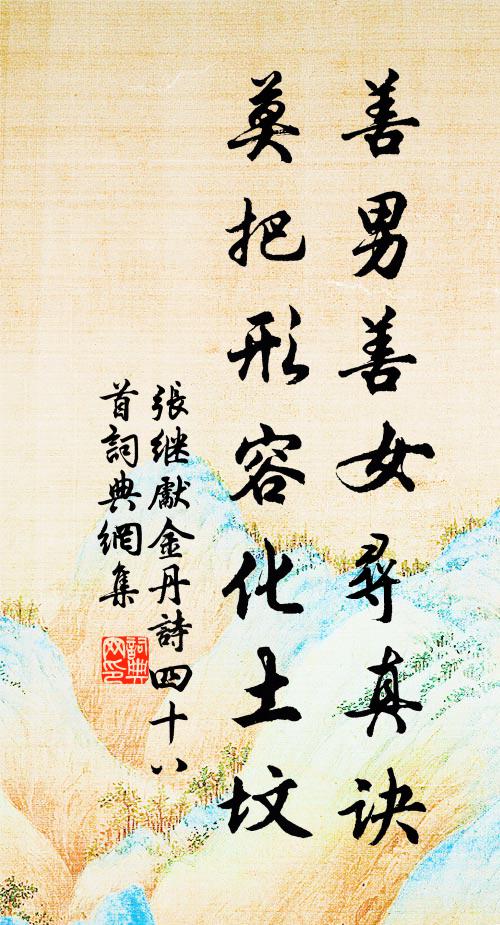 善男善女尋真訣
莫把形容化土墳
張继獻金丹詩四十八
首詞典網集
詞典網印